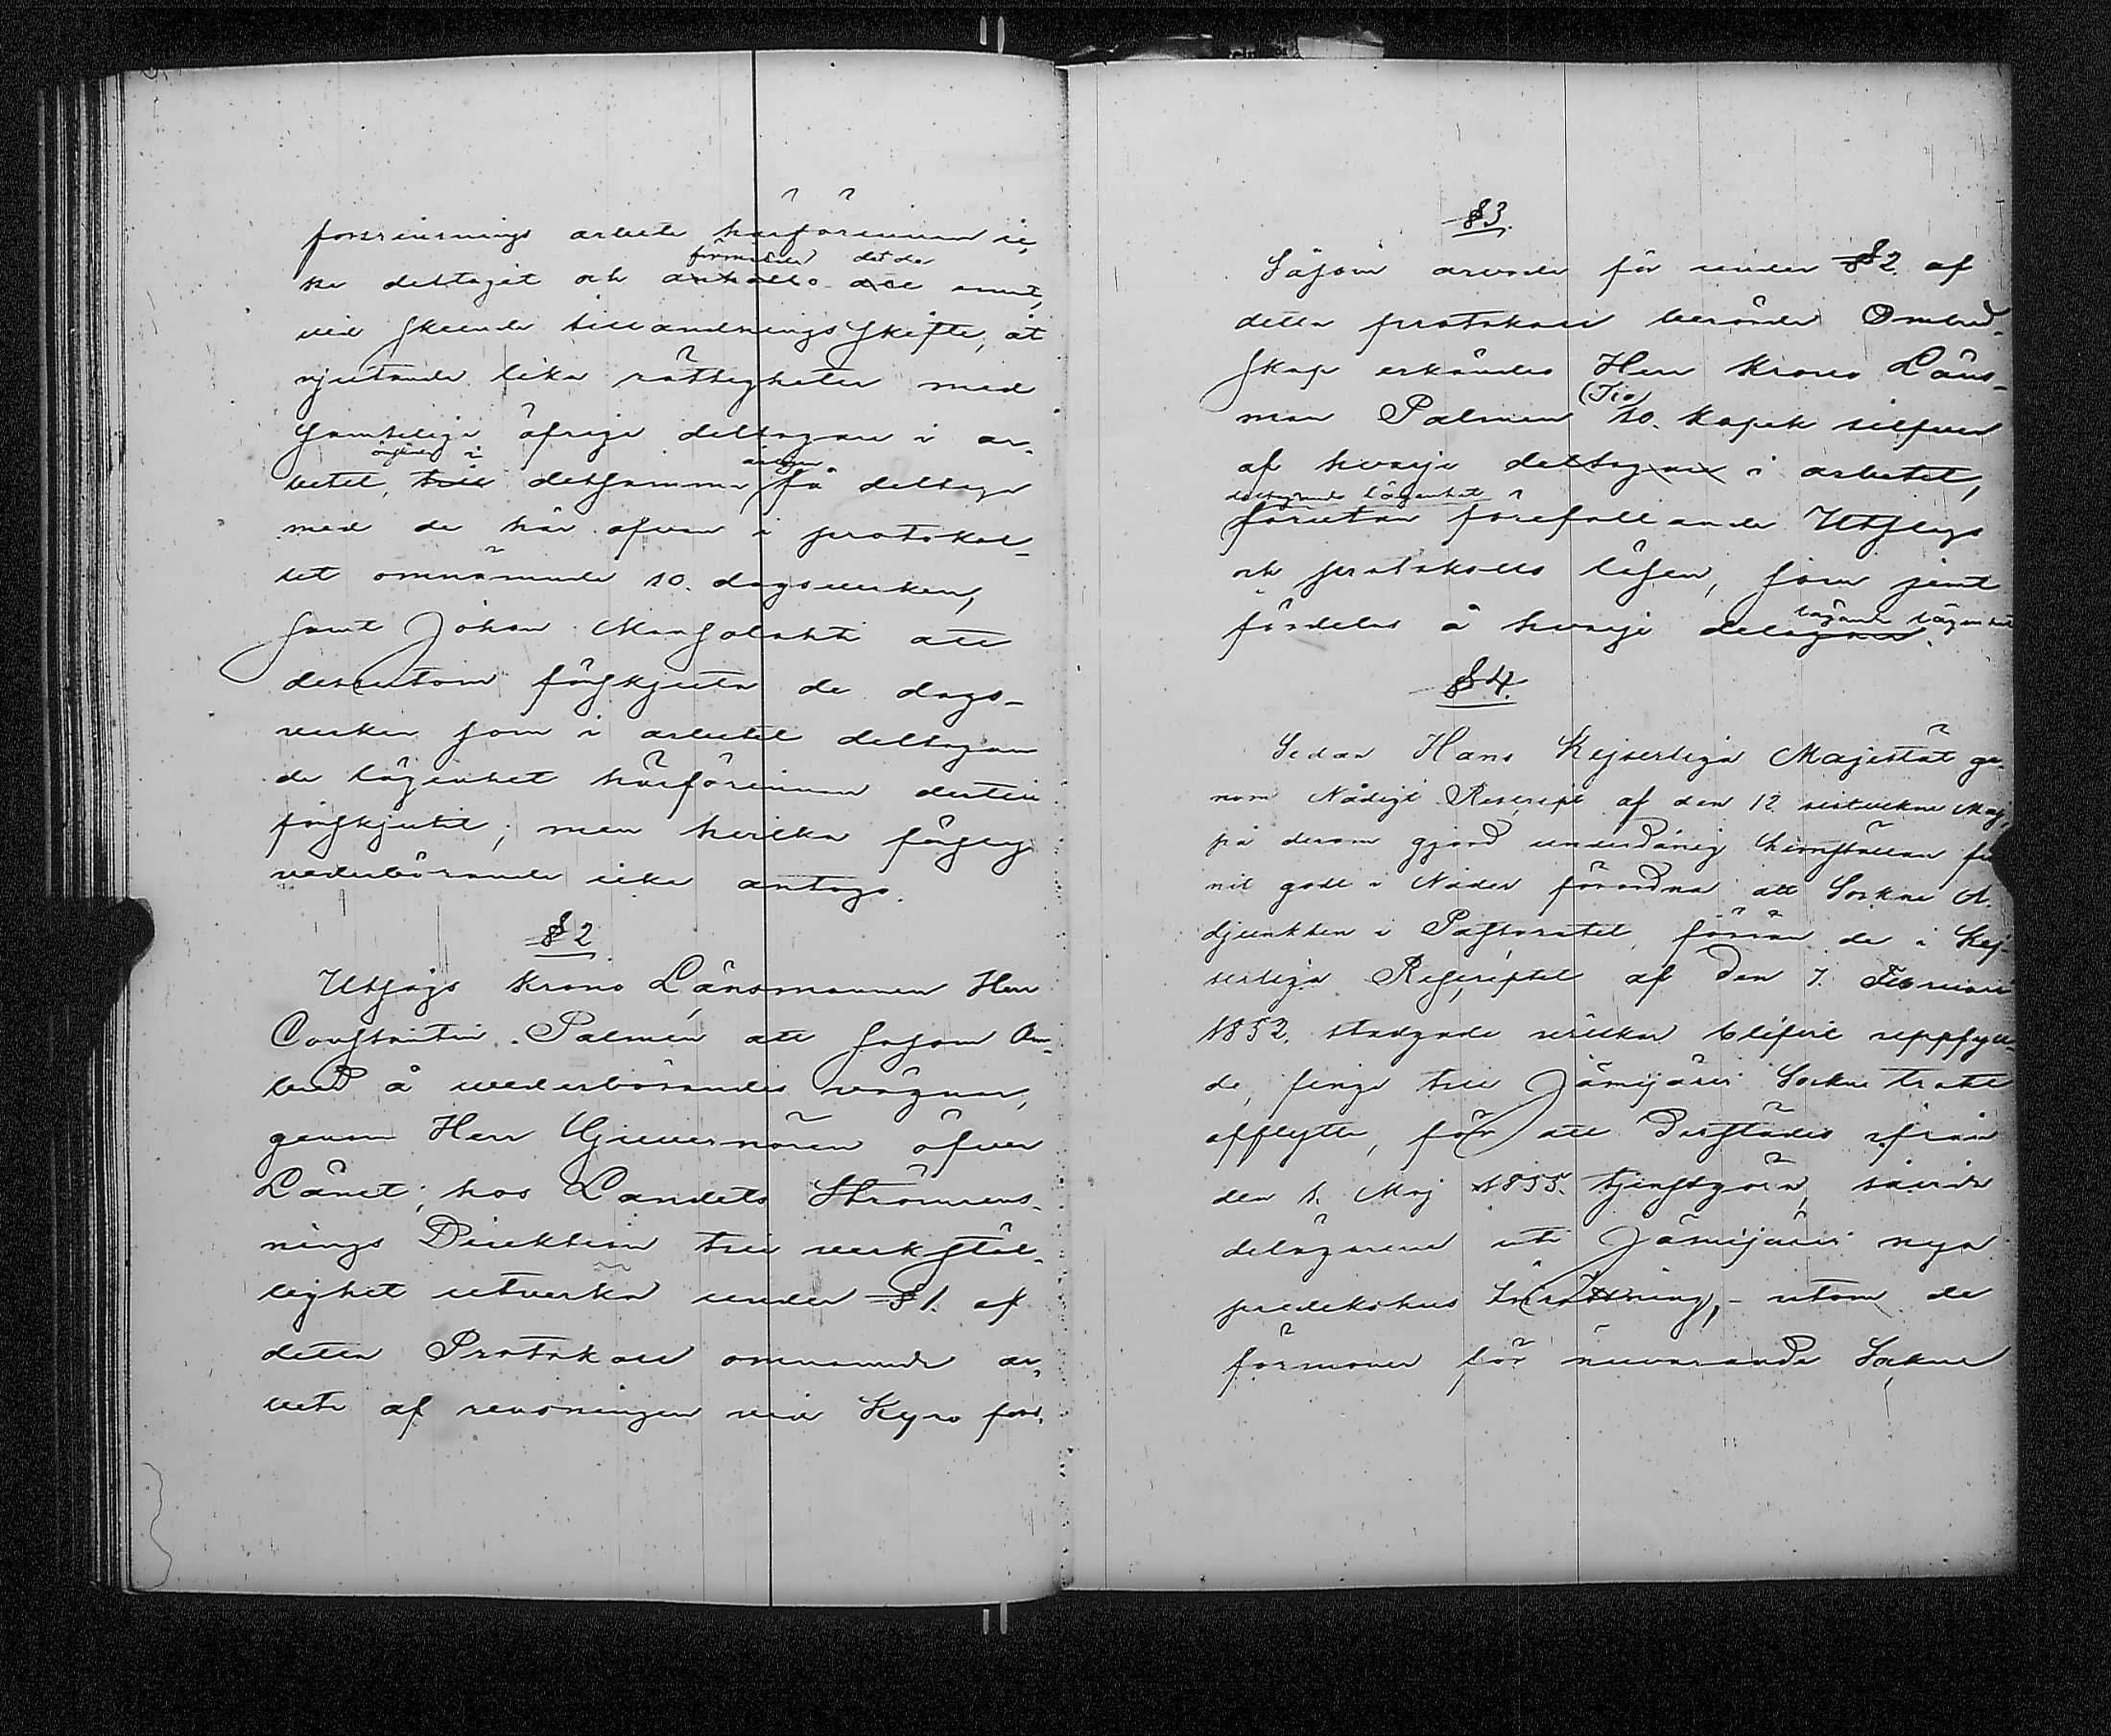 forsrensnings arbete härförinnan ic,
förmäler det de
ke deltagit och anhållo att emot,
vid skeende tillandnings skifte, åt
njutande lika rättigheter med
samtelige öfrige deltagare i ar-
i
betet, till detsamma få deltaga
med de här ofvan i protokol-
let omnämnde 10. dagsverken,
samt Johan Mansolahti att
dessutom förskjuta de dags-
verken som i arbetet deltagan
de lägenhet härförinnan dertill
förskjutit; men hvilka förslag
vederbörande icke antogo.
§ 2
Utsågs Krono Länsmannen Herr
Constantin Palmén att såsom Om-
bud å wederbörandes vägnar,
genom Herr Gjuvernören öfver
Länet, hos Landets Strömrens-
nings Direktion till verkstäl-
lighet utverka under § 1. af
detta Protokoll omnämnde ar,
bete af rensningen vid Kyro fors.
§ 3.
Såsom arvode för under § 2. af
detta protokoll berörde Ombud-
skap erkändes Herr Krono Läns-
(Tio)
man Palmen 10. kopek silfver
af hvarje deltagare i arbetet,
deltagande lägenhet
förutan förefallande Utslags
och protokolls lösen, som jemt
tagande lägenhet
fördelas å hvarje delagare.
§ 4.
Sedan Hans Kejserliga Majestät ge-
nom Nådigt Reskript af den 12 sistvekne Maj,
på derom gjord underdånig hemställan fun
nit godt i Nåder förordna att Sockne A.
djunkten i Pastoratet, förrän de i Kej-
serliga Reskriptet af den 7. Februari
1852. stadgade vilkor blifvit uppfyll-
de, finge till Jämijärvi Sockne trakt
afflytta, för att derstädes ifrån
den 1. Maj 1855. tjenstgöra, såvida
delägarena uti Jämijärvi nya
predikohus Inrättning, - utom de
förmoner för nuvarande Sockne